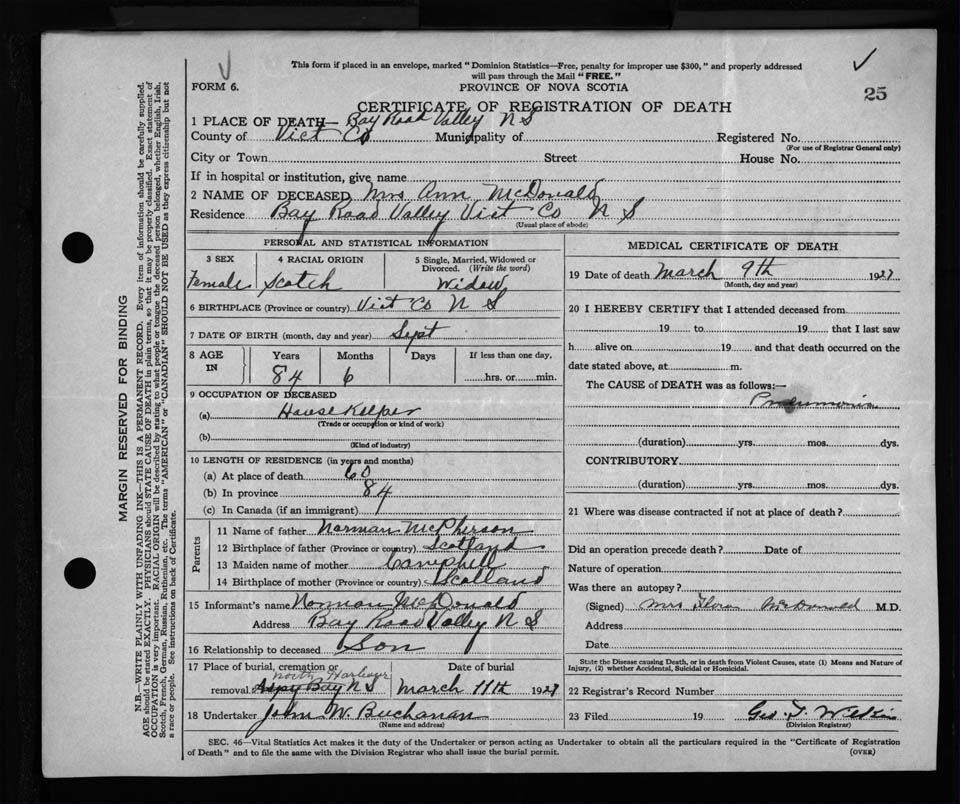 This form if placed in an envelope, marked "Dominion Statistics—Free, penalty for improper use $300," and properly addressed
will pass through the Mail "FREE."
FORM 6.
PROVINCE OF NOVA SCOTIA
25
CERTIFICATE OF REGISTRATION OF DEATH
1 PLACE OF DEATH— Bay Road Valley N S
County of Vict Co Municipality of Registered No.
(For use of Registrar General only)
City or Town Street House No.
If in hospital or institution, give name
2 NAME OF DECEASED Mrs Ann McDonald
Residence Bay Road Valley Vict Co N S
(Usual place of abode)
PERSONAL AND STATISTICAL INFORMATION
3 SEX 4 RACIAL ORIGIN 5 Single, Married, Widowed or
Divorced. (Write the word)
Female Scotch Widow
6 BIRTHPLACE (Province or country) Vict Co N S
7 DATE OF BIRTH (month, day and year) Sept
8 AGE IN Years Months Days If less than one day,
84 6 hrs. or min.
9 OCCUPATION OF DECEASED
(a) House Keeper
(Trade or occupation or kind of work)
(b)
(Kind of industry)
10 LENGTH OF RESIDENCE (in years and months)
(a) At place of death 60
(b) In province 84
(c) In Canada (if an immigrant)
Parents
11 Name of father Norman McPherson
12 Birthplace of father (Province or country) Scotland
13 Maiden name of mother Campbell
14 Birthplace of mother (Province or country) Scotland
15 Informant's name Norman McDonald
Address Bay Road Valley N S
16 Relationship to deceased Son
17 Place of burial, cremation or Date of burial
North Harbour
removal Aspy Bay N S March 11th 1927
18 Undertaker John W. Buchanan
(Name and address)
MEDICAL CERTIFICATE OF DEATH
19 Date of death March 9th 1927
(Month, day and year)
20 I HEREBY CERTIFY that I attended deceased from
19 to 19 that I last saw
h alive on 19 and that death occurred on the
date stated above, at m.
The CAUSE of DEATH was as follows:—
Pneumonia
(duration) yrs. mos. dys.
CONTRIBUTORY
(duration) yrs. mos. dys.
21 Where was disease contracted if not at place of death?
Did an operation precede death? Date of
Nature of operation
Was there an autopsy?
(Signed) Mrs McDonald M.D.
Address
Date
State the Disease causing Death, or in death from Violent Causes, state (1) Means and Nature of
Injury, (2) whether Accidental, Suicidal or Homicidal.
22 Registrar's Record Number
23 Filed 19 Geo
(Division Registrar)
SEC. 46—Vital Statistics Act makes it the duty of the Undertaker or person acting as Undertaker to obtain all the particulars required in the "Certificate of Registration
of Death" and to file the same with the Division Registrar who shall issue the burial permit. (OVER)
MARGIN RESERVED FOR BINDING
N.B.—WRITE PLAINLY WITH UNFADING INK—THIS IS A PERMANENT RECORD. Every item of information should be carefully supplied.
AGE should be stated EXACTLY. PHYSICIANS should STATE CAUSE OF DEATH in plain terms, so that it may be properly classified. Exact statement of
OCCUPATION is very important. RACIAL ORIGIN will be described by stating to what people or tongue the deceased person belonged, whether English, Irish,
Scotch, French, German, Russian, Ruthenian, etc. The terms "AMERICAN" or "CANADIAN" SHOULD NOT BE USED as they express citizenship but not
a race or people. See instructions on back of Certificate.